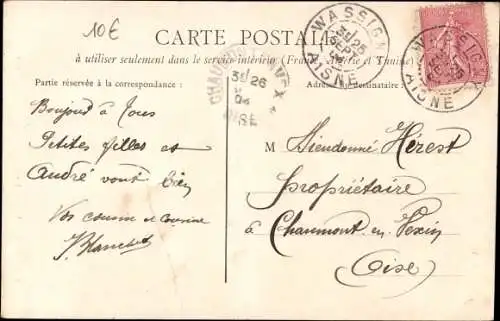 10€
CARTE POSTALE
à utiliser seulement dans le service intérieur (France, Algérie et Tunisie)
Partie réservée à la correspondance :
Adresse du destinataire :
WASSIGNY
AISNE
SEPT
WASSIGNY
AISNE
CHAUMONT EN VEXIN
26
OISE
Bonjour à tous
Petites filles et
André vont bien
Vos cousin et cousine
M Dieudonné Hérest
propriétaire
à Chaumont en Vexin
Oise